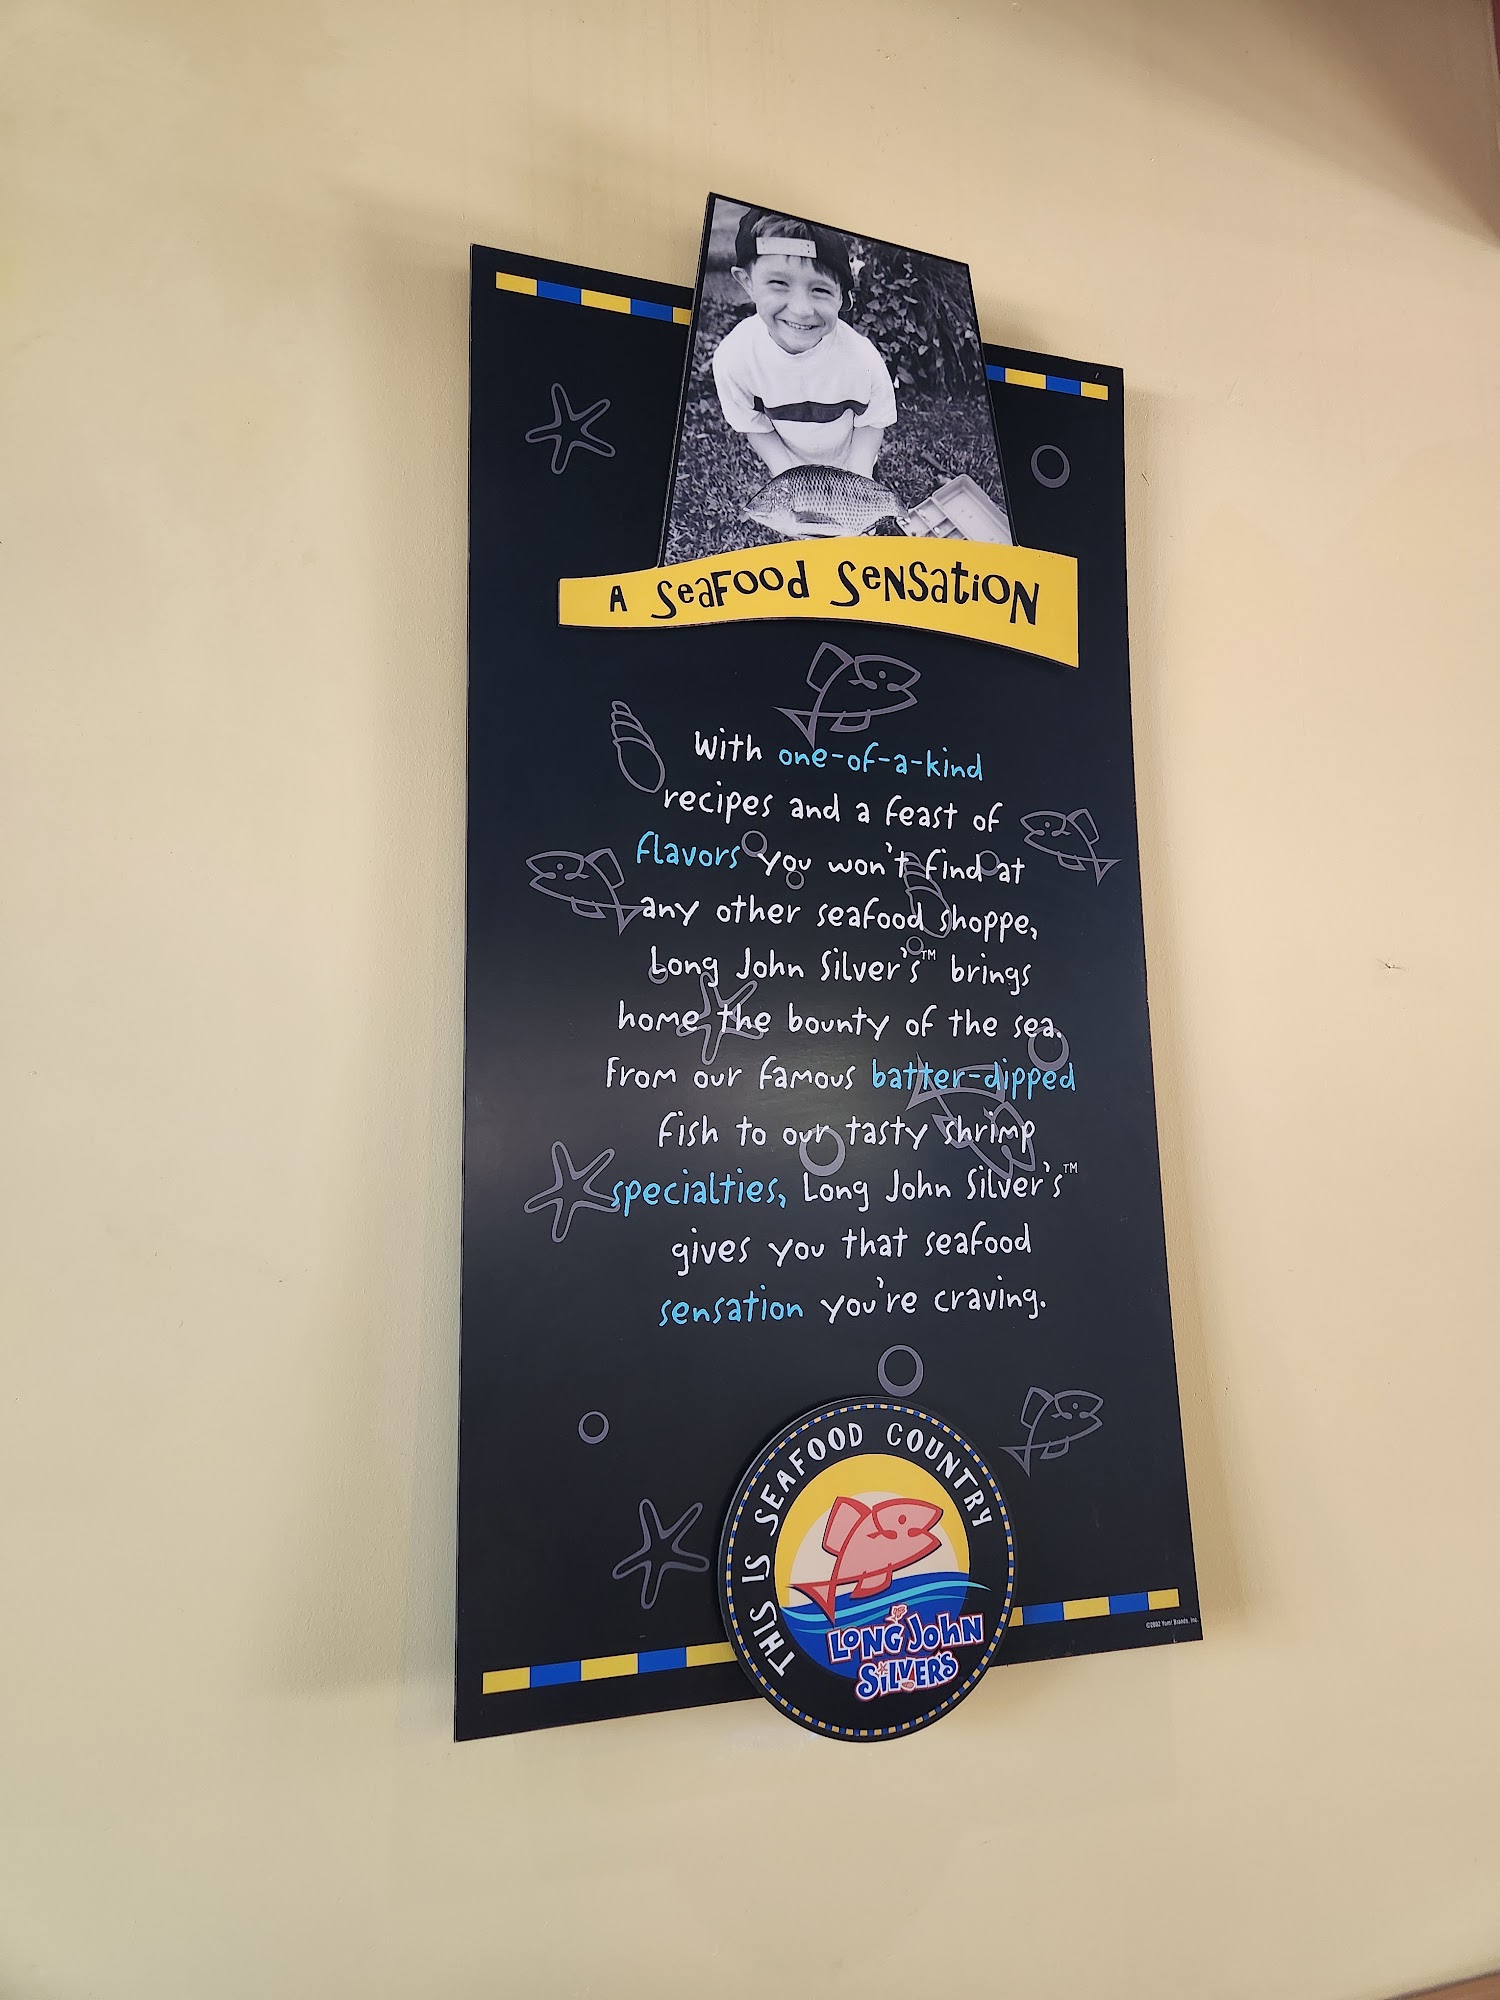 A SeaFood SeNSatiON
With one-of-a-kind
recipes and a feast of
flavors you won't find at
any other seafood shoppe,
Long John Silver's™ brings
home the bounty of the sea.
From our famous batter-dipped
fish to our tasty shrimp
specialties, Long John Silver's™
gives you that seafood
sensation you're craving.
THIS IS SEAFOOD COUNTRY
LONG JOHN
SILVER'S
©2002 Yum! Brands, Inc.